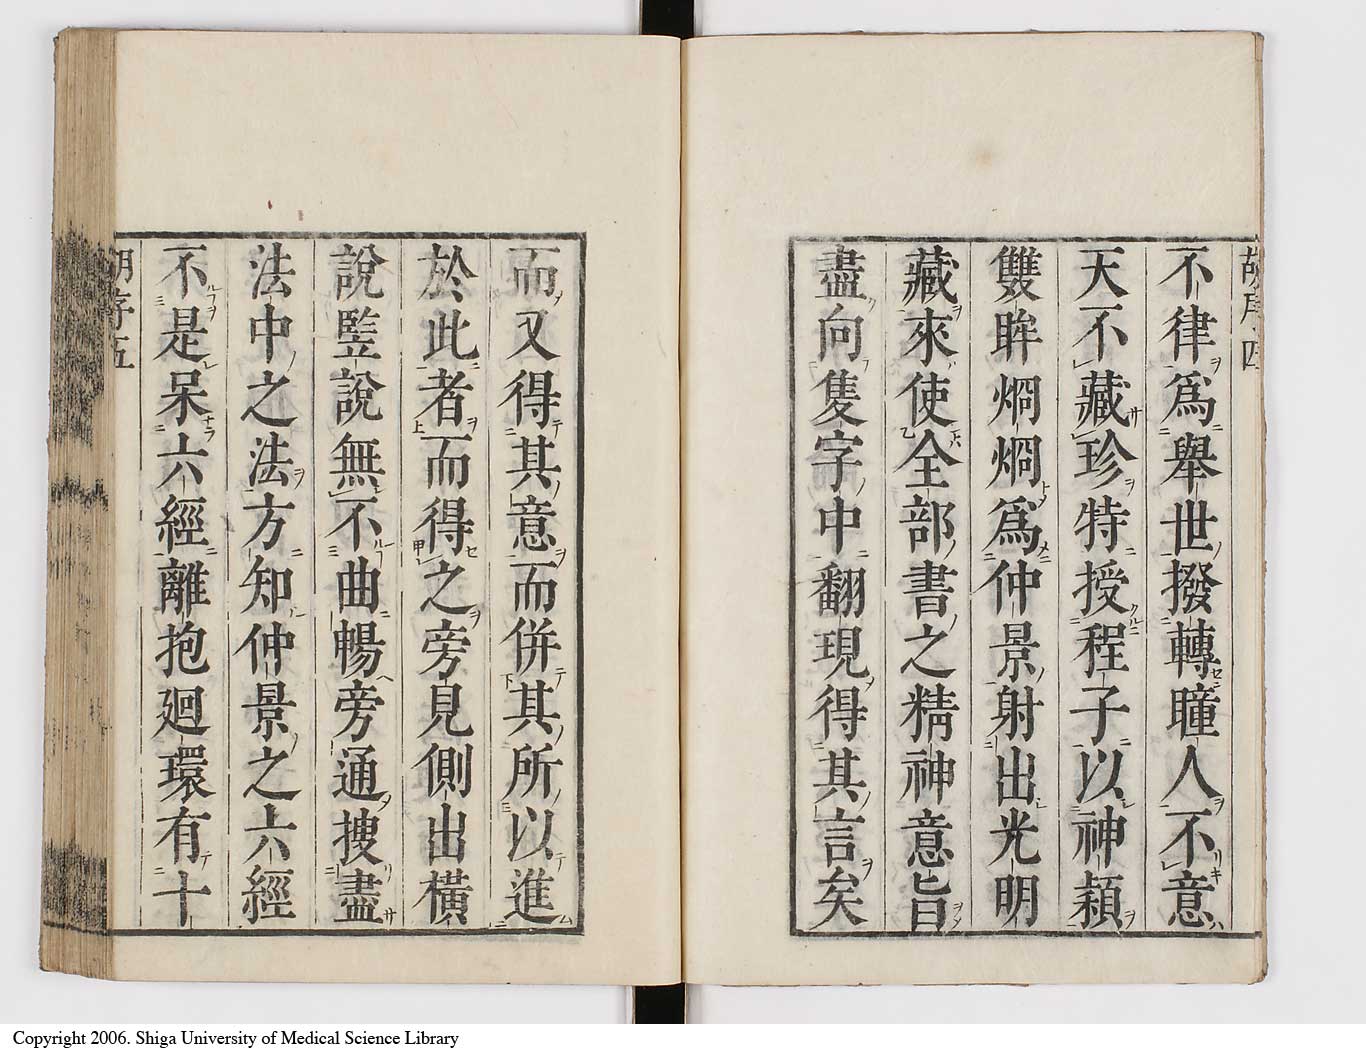 胡序 四
不律爲舉世撥轉瞳人不意
天不藏珍特授程子以神穎
雙眸烱烱爲仲景射出光明
藏來使全部書之精神意旨
盡向隻字中翻現得其言矣
而又得其意而併其所以進
於此者而得之旁見側出橫
說竪說無不曲暢旁通搜盡
法中之法方知仲景之六經
不是呆六經離抱廻環有十
胡序 五
Copyright 2006. Shiga University of Medical Science Library